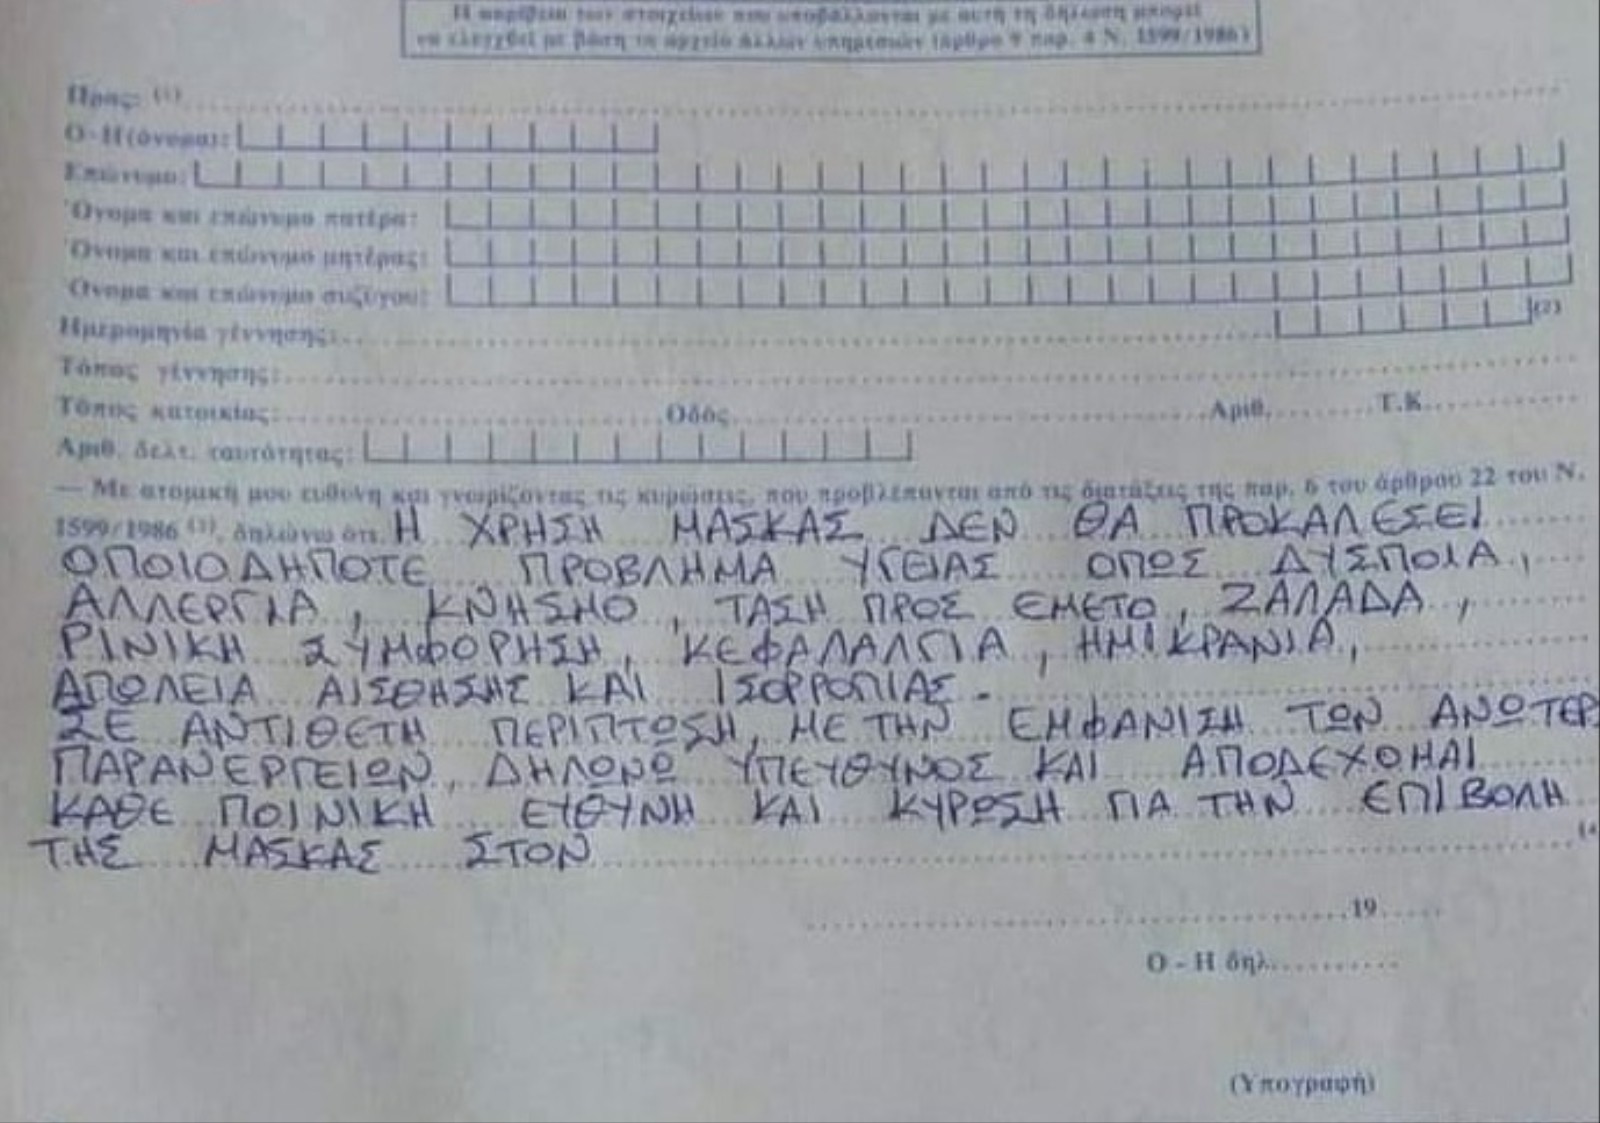 Η ακρίβεια των στοιχείων που υποβάλλονται με αυτή τη δήλωση μπορεί
να ελεγχθεί με βάση το αρχείο άλλων υπηρεσιών (άρθρο 8 παρ. 4 Ν. 1599/1986)
Προς: (1)
Ο-Η (όνομα):
Επώνυμο:
Όνομα και επώνυμο πατέρα:
Όνομα και επώνυμο μητέρας:
Όνομα και επώνυμο συζύγου:
Ημερομηνία γέννησης: (2)
Τόπος γέννησης:
Τόπος κατοικίας: Οδός Αριθ. Τ.Κ.
Αριθ. δελτ. ταυτότητας:
— Με ατομική μου ευθύνη και γνωρίζοντας τις κυρώσεις, που προβλέπονται από τις διατάξεις της παρ. 6 του άρθρου 22 του Ν.
1599/1986 (3), δηλώνω ότι Η ΧΡΗΣΗ ΜΑΣΚΑΣ ΔΕΝ ΘΑ ΠΡΟΚΑΛΕΣΕΙ
ΟΠΟΙΟΔΗΠΟΤΕ ΠΡΟΒΛΗΜΑ ΥΓΕΙΑΣ ΟΠΩΣ ΔΥΣΠΟΙΑ,
ΑΛΛΕΡΓΙΑ, ΚΝΗΣΜΟ, ΤΑΣΗ ΠΡΟΣ ΕΜΕΤΟ, ΖΑΛΑΔΑ,
ΡΙΝΙΚΗ ΣΥΜΦΟΡΗΣΗ, ΚΕΦΑΛΑΛΓΙΑ, ΗΜΙΚΡΑΝΙΑ,
ΑΠΩΛΕΙΑ ΑΙΣΘΗΣΗΣ ΚΑΙ ΙΣΟΡΡΟΠΙΑΣ.
ΣΕ ΑΝΤΙΘΕΤΗ ΠΕΡΙΠΤΩΣΗ, ΜΕ ΤΗΝ ΕΜΦΑΝΙΣΗ ΤΩΝ ΑΝΩΤΕΡ
ΠΑΡΑΝΕΡΓΕΙΩΝ, ΔΗΛΩΝΩ ΥΠΕΥΘΥΝΟΣ ΚΑΙ ΑΠΟΔΕΧΟΜΑΙ
ΚΑΘΕ ΠΟΙΝΙΚΗ ΕΥΘΥΝΗ ΚΑΙ ΚΥΡΩΣΗ ΓΙΑ ΤΗΝ ΕΠΙΒΟΛΗ
ΤΗΣ ΜΑΣΚΑΣ ΣΤΟΝ (4
19
Ο - Η δηλ.
(Υπογραφή)